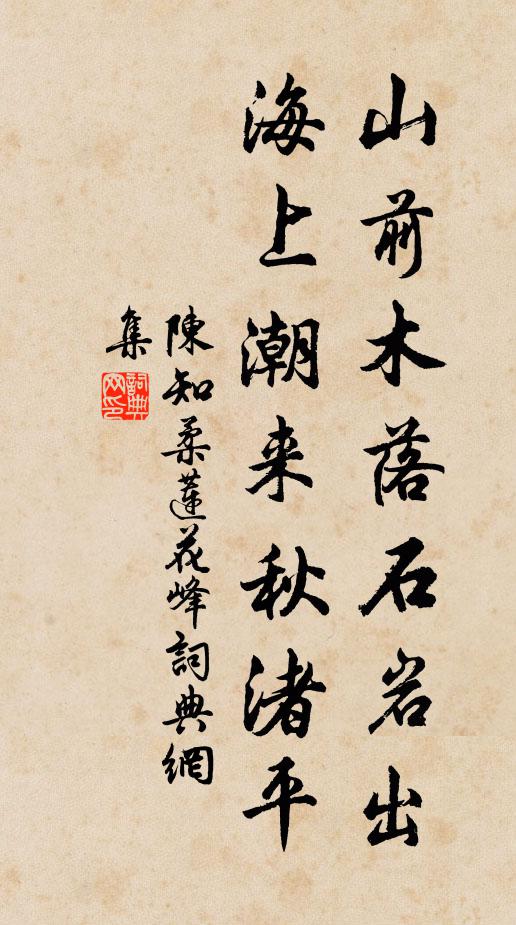 山前木落石岩出
海上潮来秋渚平
陳知柔蓮花峰詞典網
集
詞典网印